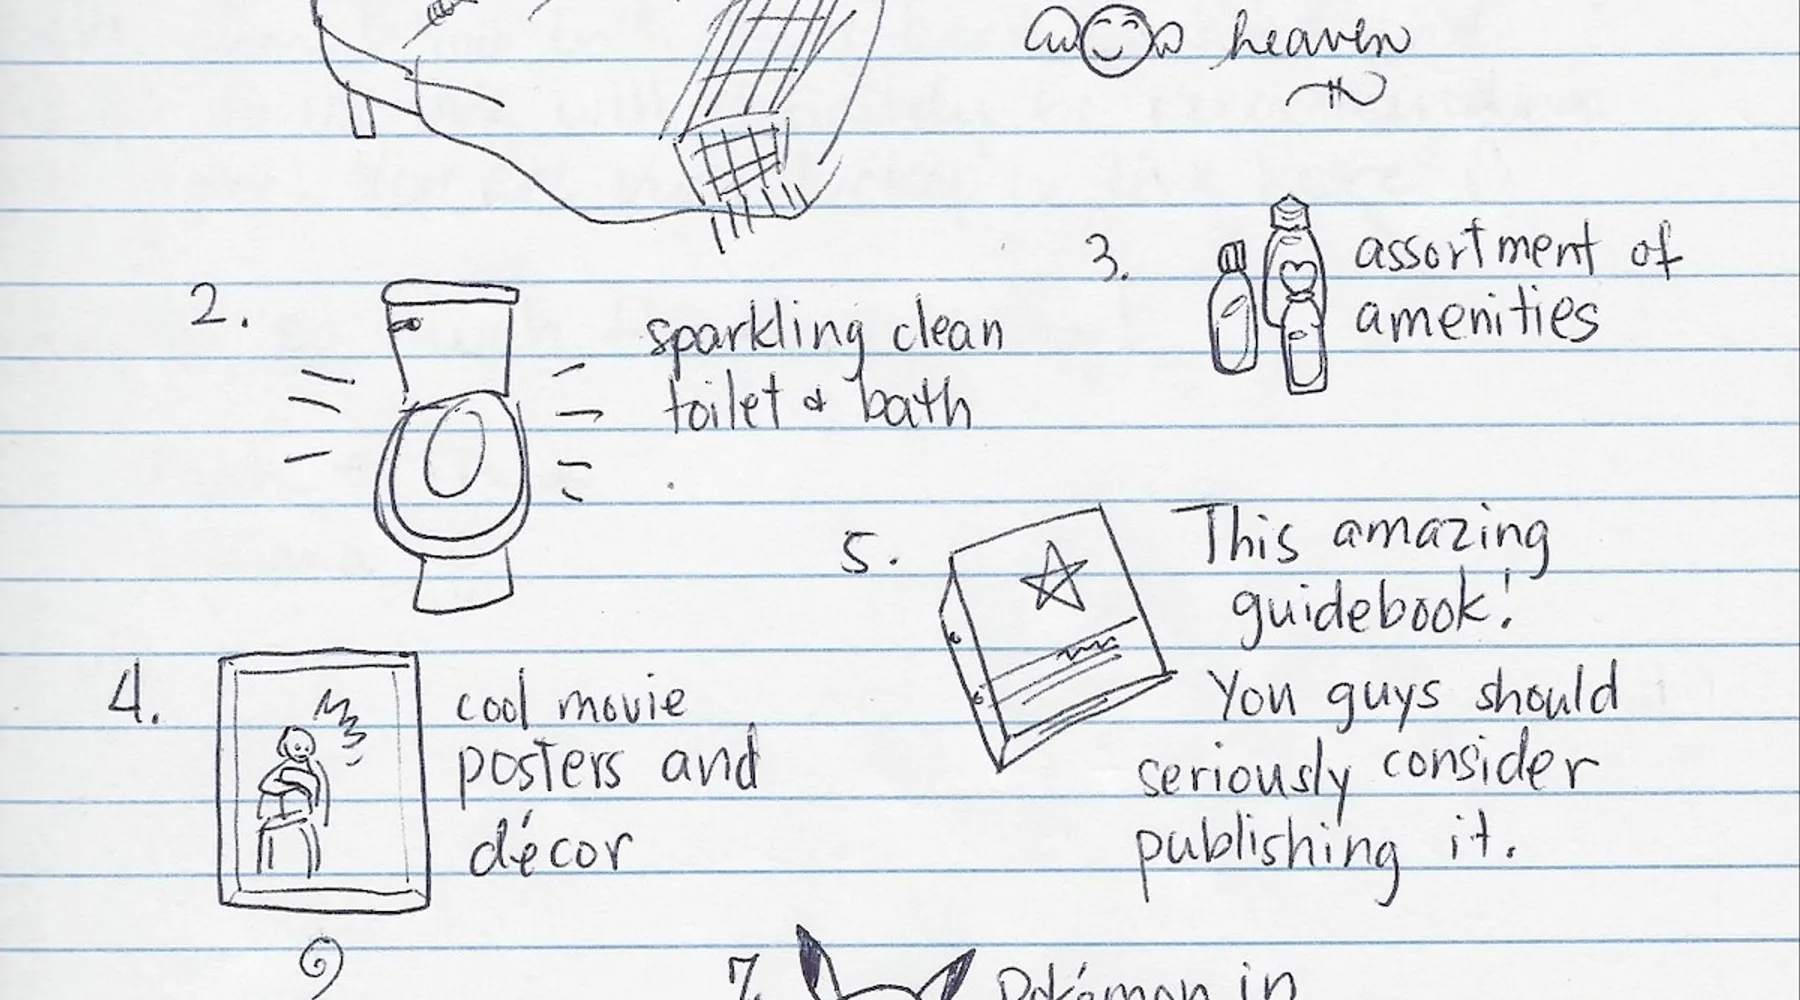 heaven
2.
sparkling clean
toilet & bath
3.
assortment of
amenities
4.
cool movie
posters and
décor
5.
This amazing
guidebook!
You guys should
seriously consider
publishing it.
7.
Pokémon in